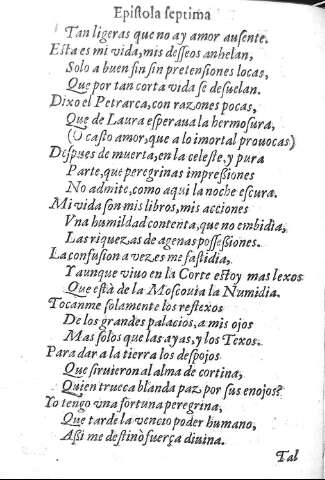 Epiſtola ſeptima
Tan ligeras que no ay amor auſente.
Eſta es mi vida, mis deſſeos anhelan,
Solo a buen fin ſin pretenſiones locas,
Que por tan corta vida ſe deſuelan.
Dixo el Petrarca, con razones pocas,
Que de Laura eſperaua la hermoſura,
(O caſto amor, que a lo imortal prouocas)
Deſpues de muerta, en la celeſte, y pura
Parte, que peregrinas impreßiones
No admite, como aqui la noche eſcura.
Mi vida ſon mis libros, mis acciones
Vna humildad contenta, que no embidia,
Las riquezas de agenas poſſeßiones.
La confuſion a vezes me faſtidia,
Y aunque viuo en la Corte eſtoy mas lexos
Que eſtà de la Moſcouia la Numidia.
Tocanme ſolamente los reflexos
De los grandes palacios, a mis ojos
Mas ſolos que las ayas, y los Texos.
Para dar a la tierra los deſpojos
Que ſiruieron al alma de cortina,
Quien trueca blanda paz, por ſus enojos?
Yo tengo vna fortuna peregrina,
Que tarde la vencio poder humano,
Aſsi me deſtinò fuerça diuina.
Tal